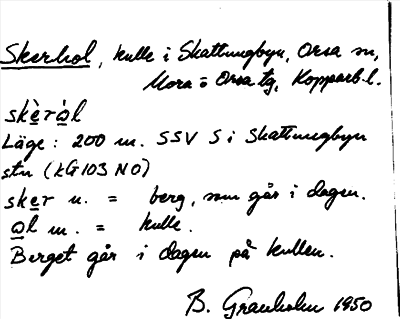 Skerhol, kulle i Skattungbyn, Orsa sn,
Mora o Orsa tg, Kopparb. l.
skèràl
Läge: 200 m. SSV S i Skattungbyn
stn (KG103 NO)
sker n. = berg, som går i dagen.
ål m. = kulle.
Berget går i dagen på kullen.
B. Granholm 1950